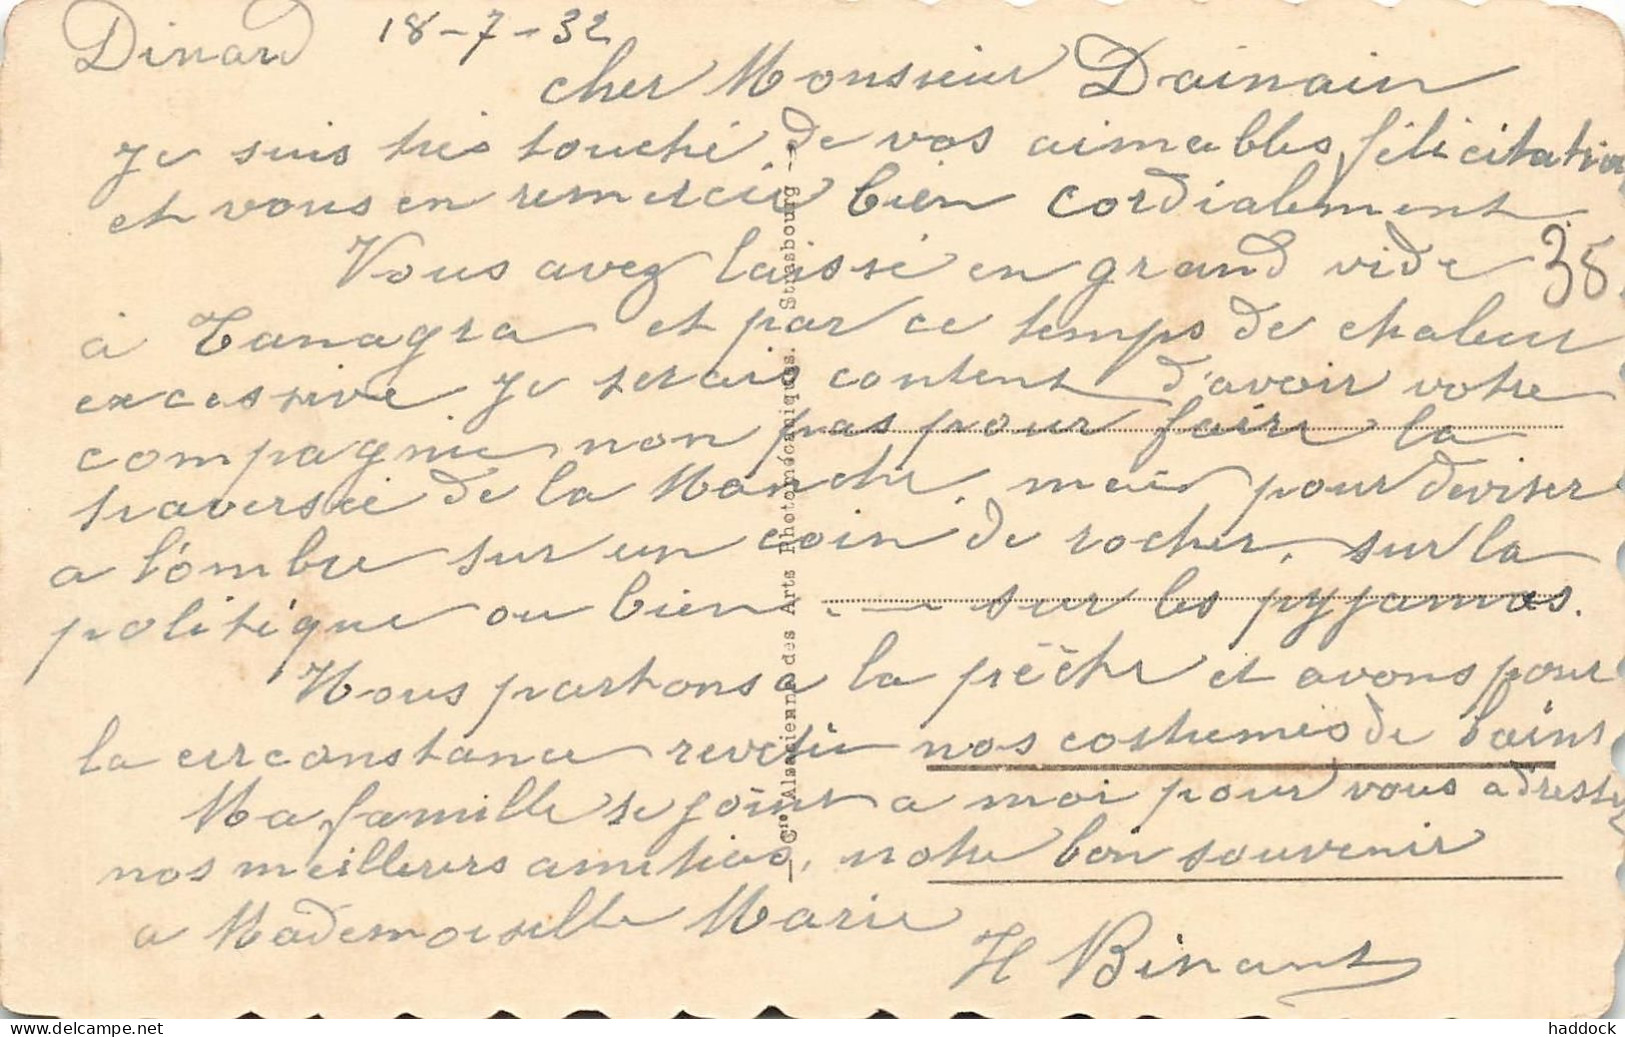 Dinard 18-7-32
cher Monsieur Dainain
je suis très touché de vos aimables félicitations
et vous en remercie bien cordialement.
Vous avez laissé en grand vide 35
à Tanagra et par ce temps de chaleur
excessive je serais content d'avoir votre
compagnie non pas pour faire la
traversée de la Manche, mais pour deviser
a l'ombre sur un coin de rocher, sur la
politique ou bien... — sur les pyjamas.
Nous partons a la pêche et avons pour
la circonstance revêtu nos costumes de bains
Ma famille se joint a moi pour vous adresser
nos meilleurs amitiés, notre bon souvenir
a Mademoiselle Marie
H Binant
Cie Alsacienne des Arts Photomécaniques. Strasbourg
Dinard CPA - 18 juillet 1932 haddock